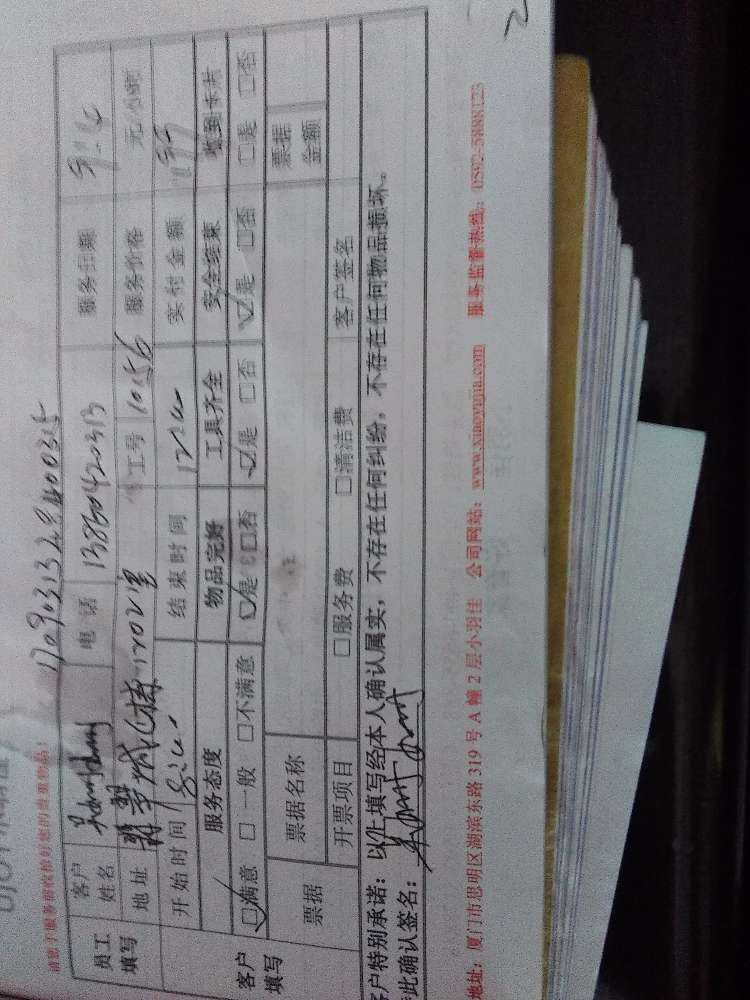 请您于服务前收拾好您的贵重物品！
17090313294400315
员工填写 客户姓名 电话 13860420313 服务日期
地址 702室 工号 1056 服务价格 元/小时
开始时间 结束时间 实付金额
客户填写 服务态度 物品完好 工具齐全 安全结束 收到卡片
☑满意 □一般 □不满意 ☑是 □否 ☑是 □否 ☑是 □否 □是 □否
票据 票据名称 票据金额
开票项目 □服务费 □清洁费 客户签名
客户特别承诺：以上填写经本人确认属实，不存在任何纠纷，不存在任何物品损坏。
特此确认签名：
地址：厦门市思明区湖滨东路 319 号 A 幢 2 层小羽佳 公司网站：www.xiaoyujia.com 服务监督热线：0592-5888123